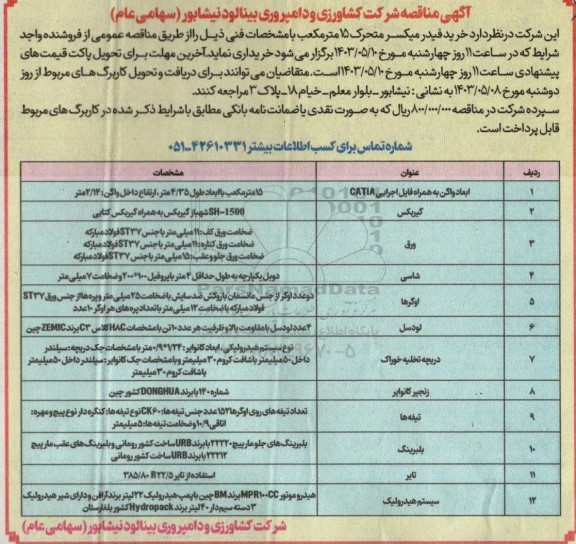 آگهی مناقصه شرکت کشاورزی و دامپروری بینالود نیشابور (سهامی عام)
این شرکت در نظر دارد خرید فیدر میکسر متحرک ۱۵ مترمکعب با مشخصات فنی ذیل را از طریق مناقصه عمومی از فروشنده واجد
شرایط که در ساعت ۱۱ روز چهارشنبه مورخ ۱۴۰۳/۰۵/۱۰ برگزار می شود خریداری نماید. آخرین مهلت برای تحویل پاکت قیمت های
پیشنهادی ساعت ۱۱ روز چهارشنبه مورخ ۱۴۰۳/۰۵/۱۰ است. متقاضیان می توانند برای دریافت و تحویل کاربرگ های مربوط از روز
دوشنبه مورخ ۱۴۰۳/۰۵/۰۸ به نشانی : نیشابور - بلوار معلم - خیام ۱۸ - پلاک ۳ مراجعه کنند.
سپرده شرکت در مناقصه ۸۰۰/۰۰۰/۰۰۰ ریال که به صورت نقدی یا ضمانت نامه بانکی مطابق با شرایط ذکر شده در کاربرگ های مربوط
قابل پرداخت است.
شماره تماس برای کسب اطلاعات بیشتر ۴۲۶۱۰۳۳۱-۰۵۱
ردیف عنوان مشخصات
۱ ابعاد واگن به همراه فایل اجرایی CATIA ۱۵ مترمکعب با ابعاد طول ۴/۳۵ متر ، ارتفاع داخل واگن : ۲/۱۴ متر
۲ گیربکس SH-1500 شهباز گیربکس به همراه گیربکس کتابی
۳ ورق ضخامت ورق کف: ۱۱ میلی متر با جنس ST37 فولاد مبارکه
ضخامت ورق کناره: ۱۱ میلی متر با جنس ST37 فولاد مبارکه
ضخامت ورق جلو و عقب: ۱۵ میلی متر با جنس ST37 فولاد مبارکه
۴ شاسی دوبل یکپارچه به طول حداقل ۴ متر با پروفیل ۱۰۰*۲۰۰ و ضخامت ۷ میلی متر
۵ اوگرها دو عدد اوگر از جنس مانسمان با روکش ضد سایش با ضخامت ۲۵ میلی متر و پره ها از جنس ورق ST37
فولاد مبارکه با ضخامت ۱۲ میلی متر با تعداد پره های هر اوگر ۱۰ عدد
۶ لودسل ۴ عدد لودسل با مقاومت بالا و ظرفیت هر عدد ۱۰ تن با مشخصات HAC کلاس C3 برند ZEMIC چین
۷ دریچه تخلیه خوراک نوع سیستم هیدرولیکی ، ابعاد کانوایر : ۰/۹*۱/۲۴ متر با مشخصات جک دریچه: سیلندر
داخل ۵۰ میلیمتر با شافت کروم ۳۰ میلیمتر و با مشخصات جک کانوایر : سیلندر داخل ۵۰ میلیمتر
با شافت کروم ۳۰ میلیمتر
۸ زنجیر کانوایر شماره ۱۴۰ با برند DONGHUA کشور چین
۹ تیغه ها تعداد تیغه های روی اوگرها ۱۵۲ عدد جنس تیغه ها: CK60 نوع تیغه ها: کنگره دار نوع پیچ و مهره:
اتاقی ۱۰/۹ و ضخامت تیغه ها: ۵ میلیمتر
۱۰ بلبرینگ بلبرینگ های جلو مارپیچ ۲۲۲۲۰ با برند URB ساخت کشور رومانی و بلبرینگ های عقب مارپیچ
۲۲۲۱۲ با برند URB ساخت کشور رومانی
۱۱ تایر استفاده از تایر ۳۸۵/۸۰ R۲۲/۵
۱۲ سیستم هیدرولیک هیدروموتور MPR100CC برند BM چین با پمپ هیدرولیک ۲۲ لیتر برند آرافن و دارای شیر هیدرولیک
۳ دسته سیم دار ۴۰ لیتر برند Hydropack کشور بلغارستان
شرکت کشاورزی و دامپروری بینالود نیشابور (سهامی عام)